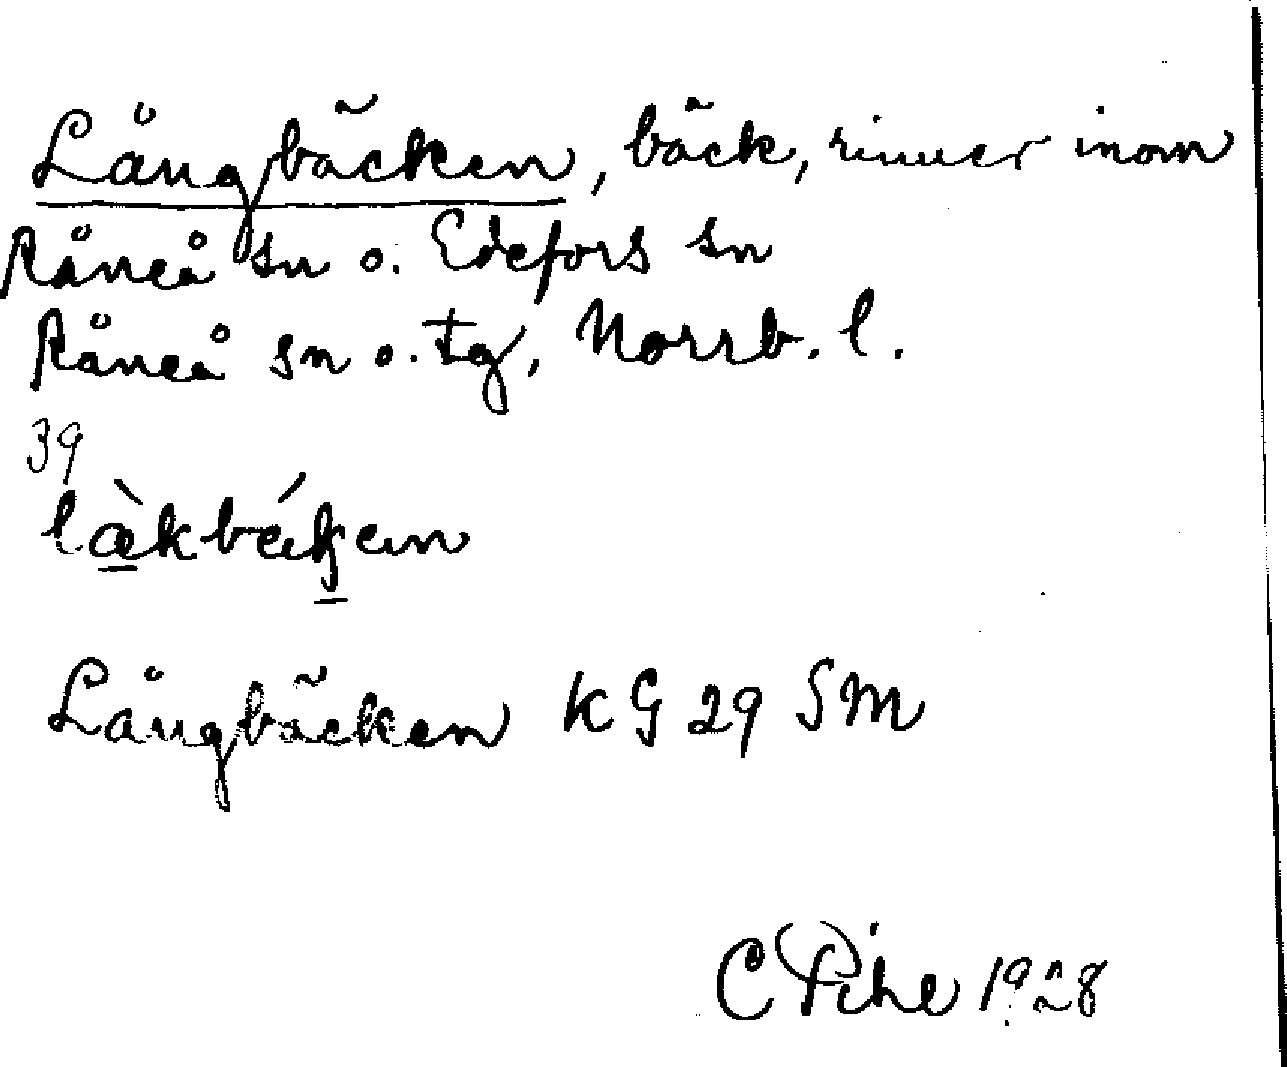 Långbäcken, bäck, rinner inom
Råneå sn o. Edefors sn
Råneå sn o. tg, Norrb. l.
39
læ̱̀kbɛ́ḵen
Långbäcken KG 29 SM
C Pihl 1928